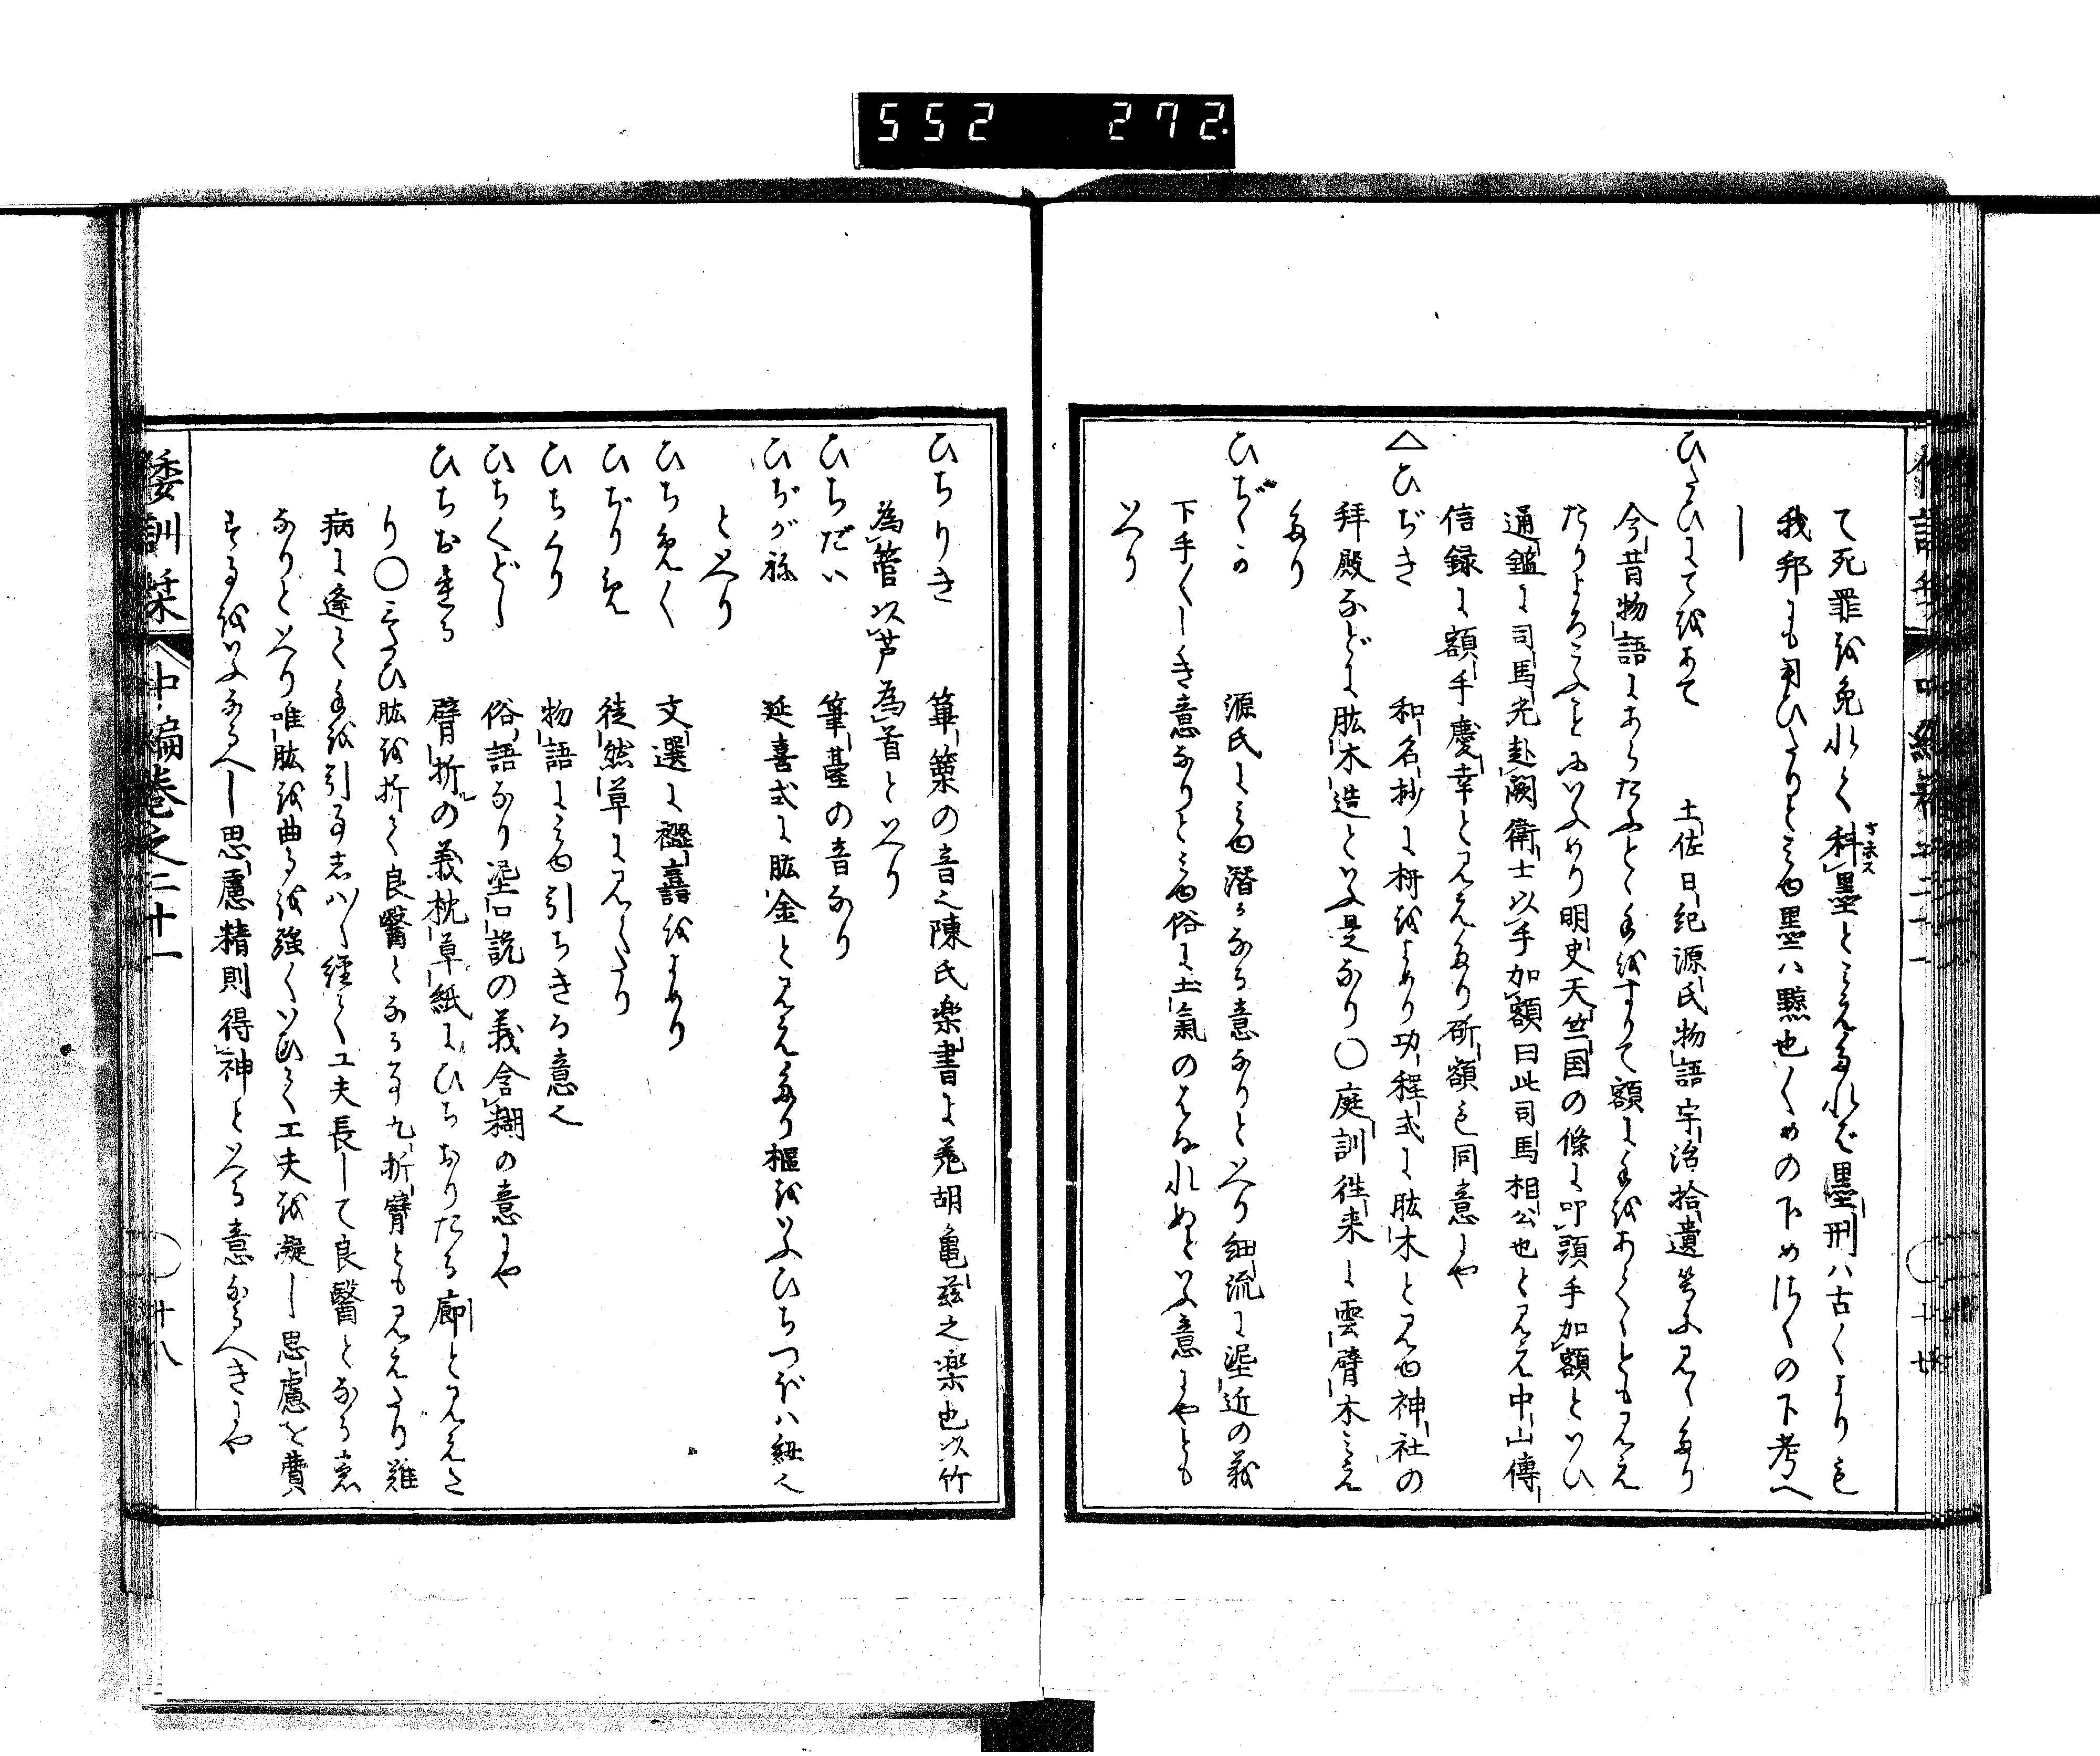 552 272.
て死罪を免れて科墨と見えたれば墨刑ハ古くよりも
キホス
我邦にも用ひたりと見ゆ墨ハ黥也くめの下めさくの下考へ
し
ひたひにてをあて 土佐日紀源氏物語宇治拾遺等に見えたり
今昔物語にあらたふとて手をすりて額に手をあててとも見え
たりよろこふことにいへり明史天竺国の條に叩頭手加額といひ
通鑑に司馬光赴闕衛士以手加額曰此司馬相公也と見え中山傳
信録に額手慶幸と見えたり斫額も同意にや
△ひぢき 和名抄に枅をよめり功程式に肱木と見ゆ神社の
拝殿などに肱木造といふ是なり○庭訓往来に雲臂木と見え
たり
ひぢゝか 源氏に見ゆ潜かなる意なりといへり細流に泥近の義
下手くしき意なりと見ゆ俗に土氣のはなれぬといふ意にやとも
いへり
ひちりき 篳篥の音也陳氏楽書に羗胡亀茲之楽也以竹
為管以芦為首といへり
ひちだい 篳臺の音なり
ひぢがね 延喜式に肱金と見えたり樞をいふひちつぼハ紐也
といへり
ひちめく 文選に 嚞をよめり
ひぢりめ 徒然草に見えたり
ひちくり 物語に見ゆ引ちきる意也
ひちくどし 俗語なり泥口説の義含糊の意にや
ひちおれる 臂折ルの義枕草紙にひちおりたる廊と見えた
り○三たひ肱を折て良醫となる事九折臂とも見えたり難
病に逢て手を引事しハ〱經て工夫長して良醫となる意
なりといへり唯肱を曲るを強くいひて工夫を凝し思慮を費
するをいふなるへし思慮精則得神といへる意なるへきにや
倭訓栞 中編巻之二十一 ○十八